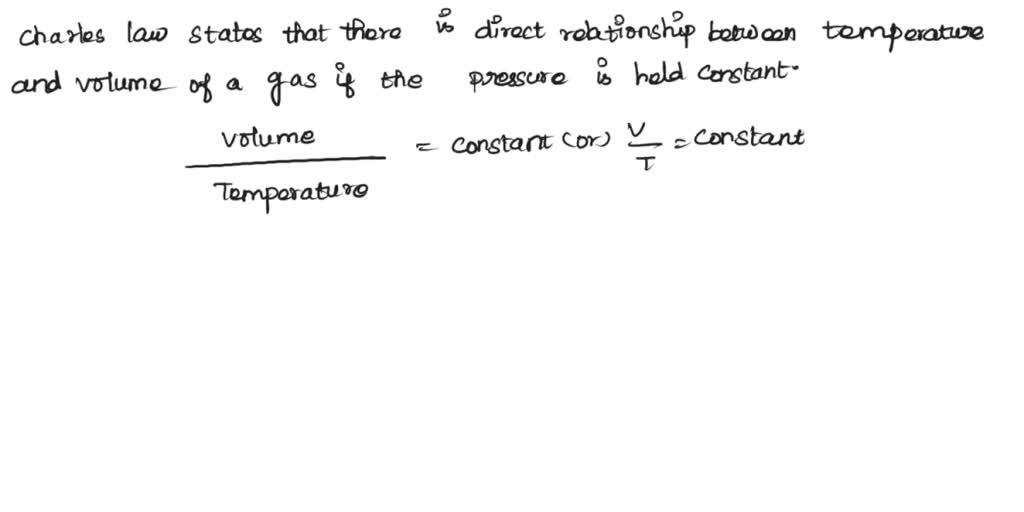 Charles law states that there is direct relationship between temperature
and volume of a gas if the pressure is held constant.
Volume / Temperature = constant (or) V / T = constant